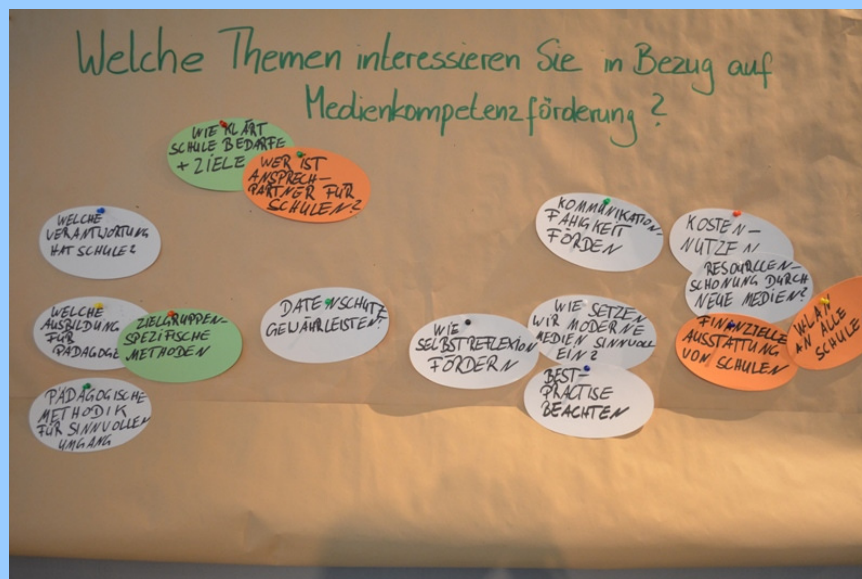 Welche Themen interessieren Sie in Bezug auf
Medienkompetenzförderung?
WIE KLÄRT
SCHULE BEDARFE
+ ZIELE
WER IST
ANSPRECH-
PARTNER FÜR
SCHULEN?
WELCHE
VERANTWORTUNG
HAT SCHULE?
WELCHE
AUSBILDUNG
FÜR
PÄDAGOGE
ZIELGRUPPEN-
SPEZIFISCHE
METHODEN
PÄDAGOGISCHE
METHODIK
FÜR SINNVOLLEN
UMGANG
DATENSCHUTZ
GEWÄHRLEISTEN?
WIE
SELBSTREFLEXION
FÖRDERN
KOMMUNIKATION-
FÄHIGKEIT
FÖRDEN
WIE SETZEN
WIR MODERNE
MEDIEN SINNVOLL
EIN?
BEST-
PRACTISE
BEACHTEN
KOSTEN-
NUTZEN
RESOURCEN-
SCHONUNG DURCH
NEUE MEDIEN?
FINANZIELLE
AUSSTATTUNG
VON SCHULEN
WLAN
AN ALLE
SCHULE